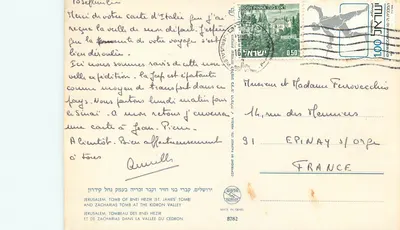 10 septembre
Merci de votre carte d'Italie que j'ai
reçue la veille de mon départ. J'espère
que la de votre voyage s'est
bien déroulée.
Ici nous sommes ravis de cette nou-
velle expédition. La Jeep est épatante
comme moyen de transport dans ce
pays. Nous partons lundi matin pour
le Sinaï. A mon retour j'enverrai
une carte à Jean-Pierre.
A bientôt. Bien affectueusement
à tous
Monsieur et Madame Ferrovecchio
14, rue des Meuniers
91 EPINAY s/Orge
FRANCE
ISRAEL
0.50
ISRAEL
1.00
ירושלים, קברי בני חזיר וקבר זכריה בעמק נחל קידרון
JERUSALEM, TOMB OF BNEI HEZIR (ST. JAMES' TOMB)
AND ZACHARIAS TOMB AT THE KIDRON VALLEY
JERUSALEM, TOMBEAU DES BNEI HEZIR
ET DE ZACHARIAS DANS LA VALLEE DU CEDRON
8762